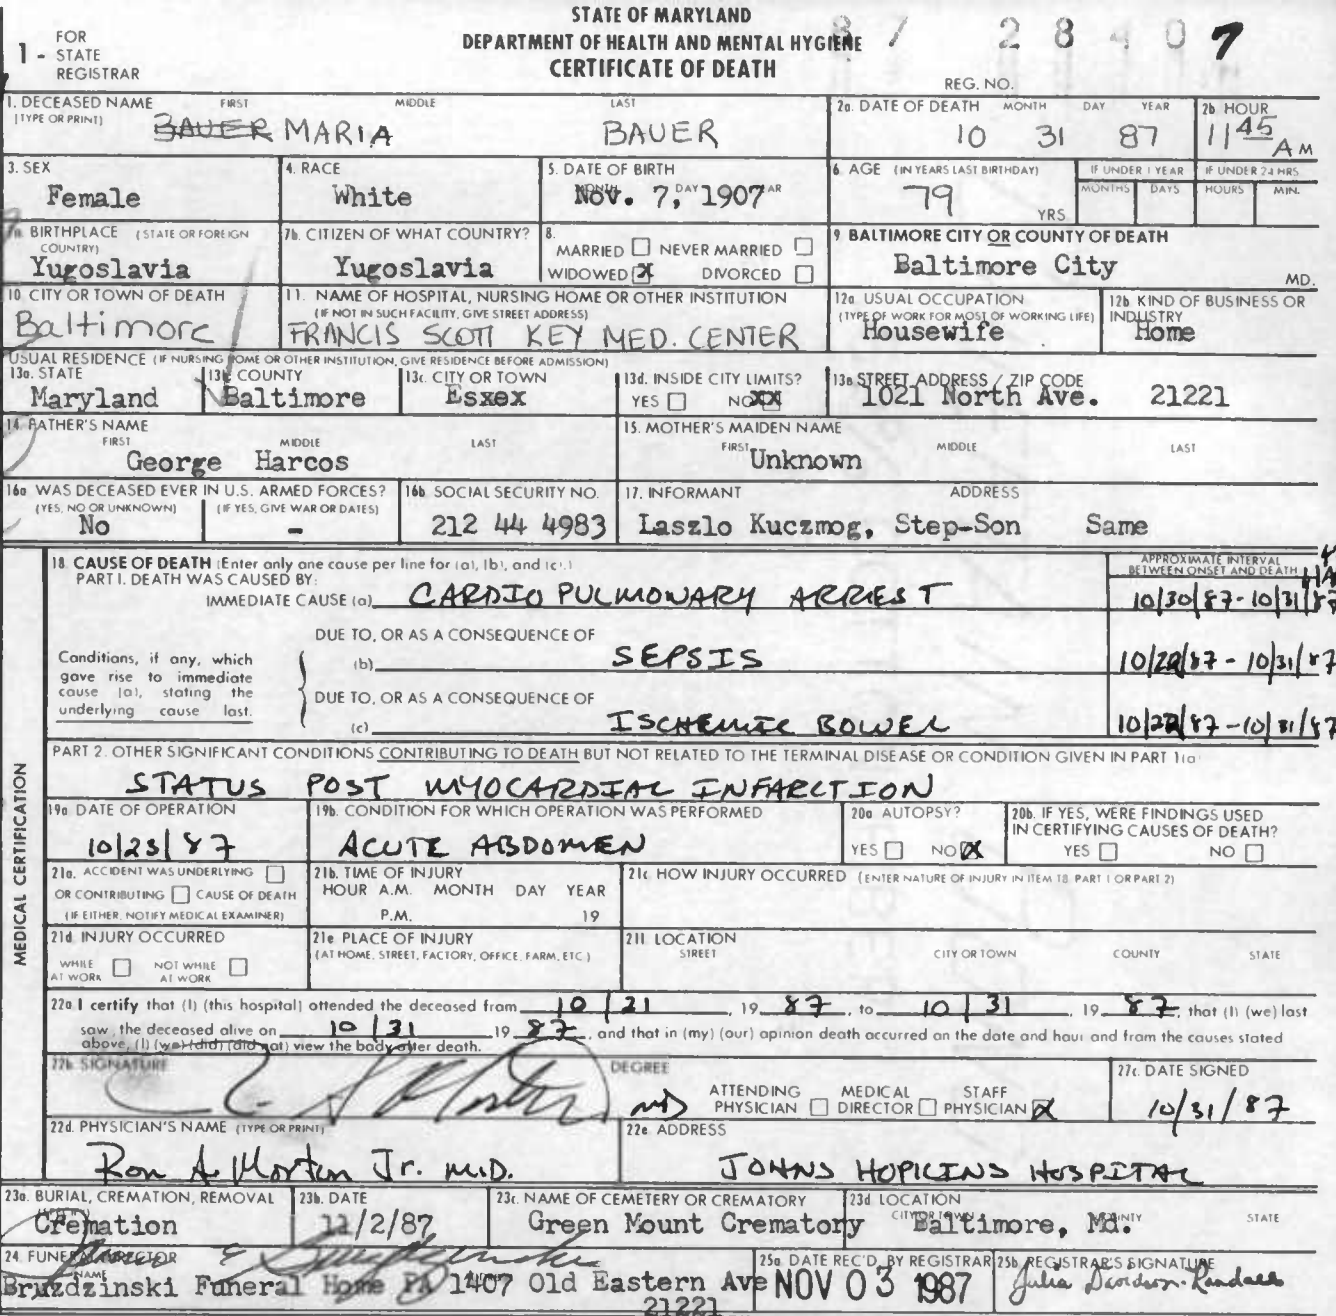 STATE OF MARYLAND
DEPARTMENT OF HEALTH AND MENTAL HYGIENE
CERTIFICATE OF DEATH
1 - FOR STATE REGISTRAR
87 28407
REG. NO.
1. DECEASED NAME (TYPE OR PRINT) FIRST MIDDLE LAST
BAUER MARIA BAUER
2a. DATE OF DEATH MONTH DAY YEAR
10 31 87
2b HOUR
11 45 A M
3. SEX
Female
4. RACE
White
5. DATE OF BIRTH MONTH DAY YEAR
Nov. 7, 1907
6 AGE (IN YEARS LAST BIRTHDAY)
79 YRS
IF UNDER 1 YEAR MONTHS DAYS
IF UNDER 24 HRS. HOURS MIN.
7a. BIRTHPLACE (STATE OR FOREIGN COUNTRY)
Yugoslavia
7b. CITIZEN OF WHAT COUNTRY?
Yugoslavia
8.
MARRIED NEVER MARRIED
WIDOWED X DIVORCED
9 BALTIMORE CITY OR COUNTY OF DEATH
Baltimore City MD.
10 CITY OR TOWN OF DEATH
Baltimore
11. NAME OF HOSPITAL, NURSING HOME OR OTHER INSTITUTION
(IF NOT IN SUCH FACILITY, GIVE STREET ADDRESS)
FRANCIS SCOTT KEY MED. CENTER
12a USUAL OCCUPATION
(TYPE OF WORK FOR MOST OF WORKING LIFE)
Housewife
12b KIND OF BUSINESS OR INDUSTRY
Home
USUAL RESIDENCE (IF NURSING HOME OR OTHER INSTITUTION, GIVE RESIDENCE BEFORE ADMISSION)
13a. STATE
Maryland
13b. COUNTY
Baltimore
13c. CITY OR TOWN
Esxex
13d. INSIDE CITY LIMITS?
YES NO XX
13e STREET ADDRESS / ZIP CODE
1021 North Ave. 21221
14 FATHER'S NAME
FIRST MIDDLE LAST
George Harcos
15. MOTHER'S MAIDEN NAME
FIRST MIDDLE LAST
Unknown
16a WAS DECEASED EVER IN U.S. ARMED FORCES?
(YES, NO OR UNKNOWN) (IF YES, GIVE WAR OR DATES)
No -
16b SOCIAL SECURITY NO.
212 44 4983
17. INFORMANT ADDRESS
Laszlo Kuczmog, Step-Son Same
MEDICAL CERTIFICATION
18 CAUSE OF DEATH (Enter only one cause per line for (a), (b), and (c).)
PART I. DEATH WAS CAUSED BY:
APPROXIMATE INTERVAL BETWEEN ONSET AND DEATH
IMMEDIATE CAUSE (a) CARDIO PULMONARY ARREST 10/30/87-10/31/87
DUE TO, OR AS A CONSEQUENCE OF
Conditions, if any, which gave rise to immediate cause (a), stating the underlying cause last.
(b) SEPSIS 10/22/87 - 10/31/87
DUE TO, OR AS A CONSEQUENCE OF
(c) ISCHEMIC BOWEL 10/22/87-10/31/87
PART 2. OTHER SIGNIFICANT CONDITIONS CONTRIBUTING TO DEATH BUT NOT RELATED TO THE TERMINAL DISEASE OR CONDITION GIVEN IN PART 1(a)
STATUS POST MYOCARDIAL INFARCTION
19a DATE OF OPERATION
10/23/87
19b. CONDITION FOR WHICH OPERATION WAS PERFORMED
ACUTE ABDOMEN
20a AUTOPSY?
YES NO X
20b. IF YES, WERE FINDINGS USED IN CERTIFYING CAUSES OF DEATH?
YES NO
21a. ACCIDENT WAS UNDERLYING
OR CONTRIBUTING CAUSE OF DEATH
(IF EITHER, NOTIFY MEDICAL EXAMINER)
21b. TIME OF INJURY
HOUR A.M. MONTH DAY YEAR
P.M. 19
21c HOW INJURY OCCURRED (ENTER NATURE OF INJURY IN ITEM 18 PART 1 OR PART 2)
21d. INJURY OCCURRED
WHILE AT WORK NOT WHILE AT WORK
21e PLACE OF INJURY
(AT HOME, STREET, FACTORY, OFFICE, FARM, ETC.)
21f. LOCATION
STREET CITY OR TOWN COUNTY STATE
22a I certify that (I) (this hospital) attended the deceased from 10/21, 19 87, to 10/31, 19 87, that (I) (we) last
saw the deceased alive on 10/31 19 87, and that in (my) (our) opinion death occurred on the date and hour and from the causes stated
above, (I) (we) (did) (did not) view the body after death.
22b SIGNATURE DEGREE
MD
ATTENDING PHYSICIAN MEDICAL DIRECTOR STAFF PHYSICIAN X
22c. DATE SIGNED
10/31/87
22d. PHYSICIAN'S NAME (TYPE OR PRINT)
Ron A. Morton Jr. M.D.
22e ADDRESS
JOHNS HOPKINS HOSPITAL
23a. BURIAL, CREMATION, REMOVAL
Cremation
23b. DATE
11/2/87
23c. NAME OF CEMETERY OR CREMATORY
Green Mount Crematory
23d LOCATION
CITY OR TOWN COUNTY STATE
Baltimore, Md.
24. FUNERAL DIRECTOR
NAME
Bruzdzinski Funeral Home PA 1407 Old Eastern Ave
21221
25a DATE REC'D. BY REGISTRAR
NOV 03 1987
25b REGISTRAR'S SIGNATURE
Julia Davidson-Randall